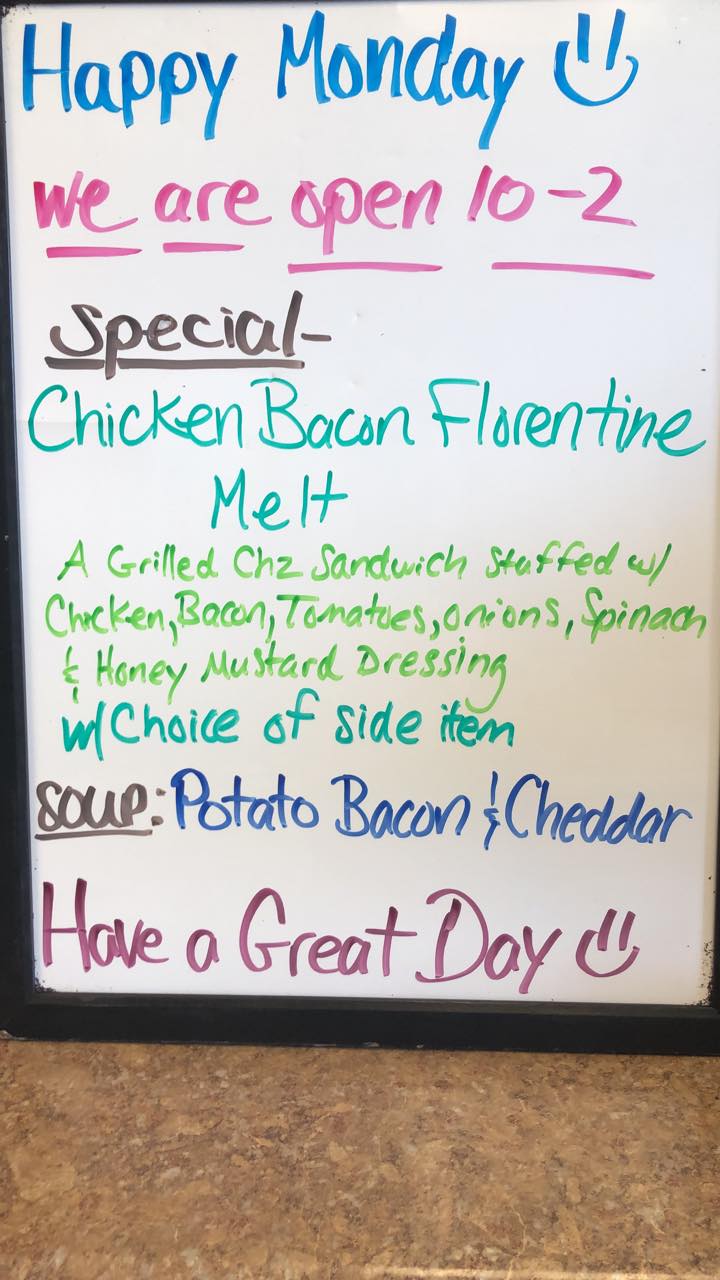 Happy Monday
we are open 10-2
Special-
Chicken Bacon Florentine
Melt
A Grilled Chz Sandwich stuffed w/
Chicken, Bacon, Tomatoes, onions, Spinach
& Honey Mustard Dressing
w/ Choice of side item
Soup: Potato Bacon & Cheddar
Have a Great Day